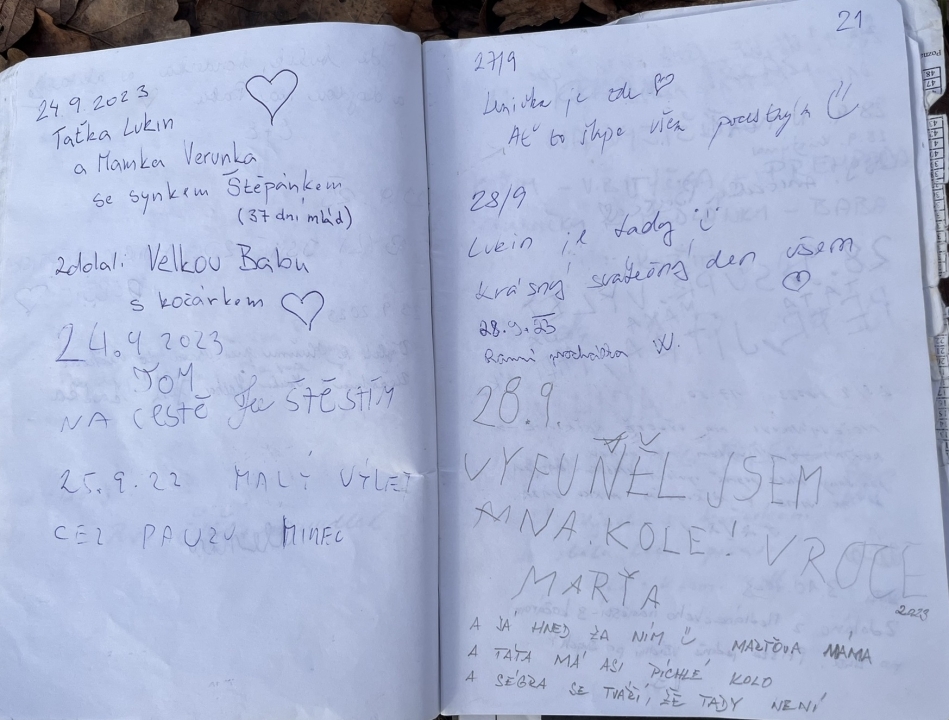 24.9.2023
Taťka Lukin
a Mamka Verunka
se synkem Štěpánkem
(37 dní mlád)
zdolali Velkou Babu
s kočárkem
24.9 2023
TOM
NA CESTĚ ŠTĚSTÍM
25.9.22 MALÝ VÝLET
CEZ PAUZU MIREC
21
27/9
je zde
Ať to všem
28/9
Lukin je tady
krásný sváteční den všem
28.9.23
Ranní procházka W.
28.9.
VYFUNĚL JSEM
NA KOLE! V ROCE
2023
MARŤA
A JÁ HNED ZA NÍM MARŤOVA MÁMA
A TÁTA MÁ ASI PÍCHLÉ KOLO
A SÉGRA SE TVÁŘÍ, ŽE TADY NENÍ